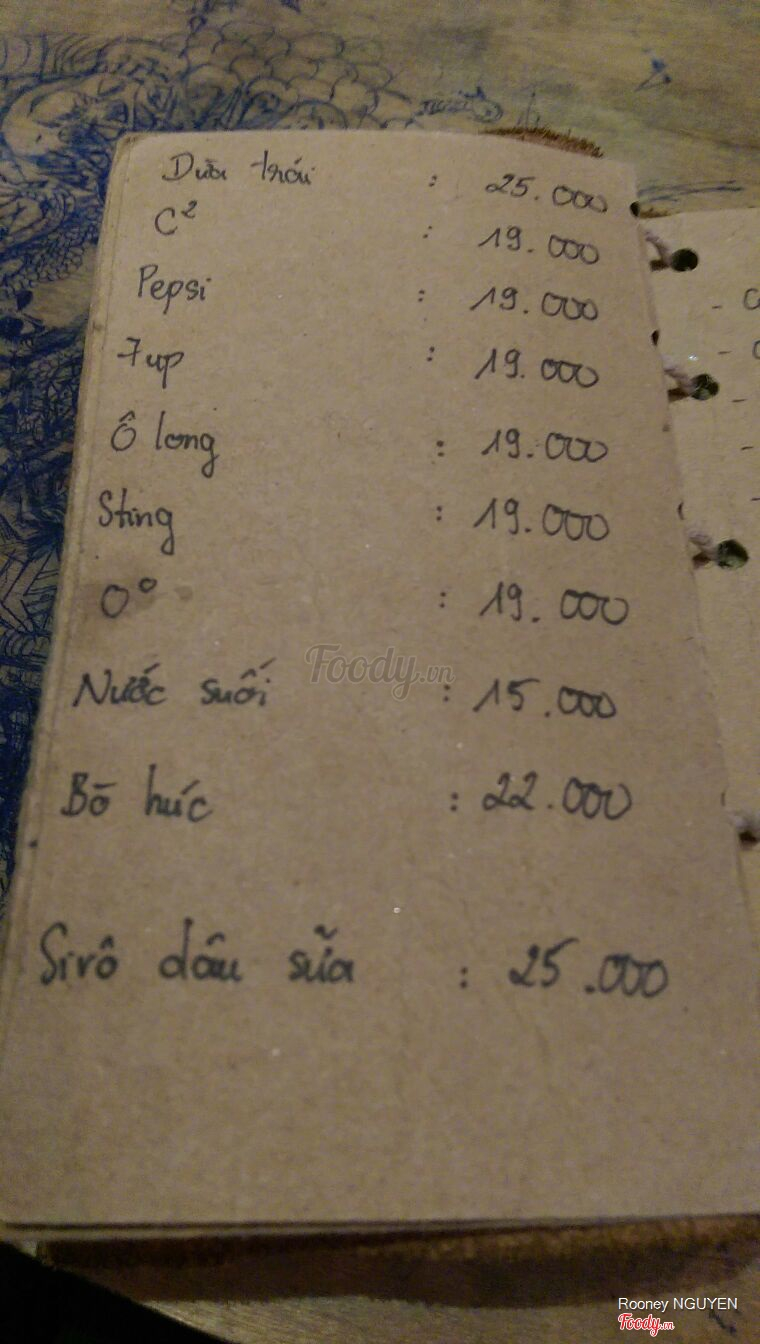 Dừa trái : 25.000
C² : 19.000
Pepsi : 19.000
7up : 19.000
Ô long : 19.000
Sting : 19.000
0° : 19.000
Nước suối : 15.000
Bò húc : 22.000
Sirô dâu sữa : 25.000
Foody.vn
Rooney NGUYEN
Foody.vn